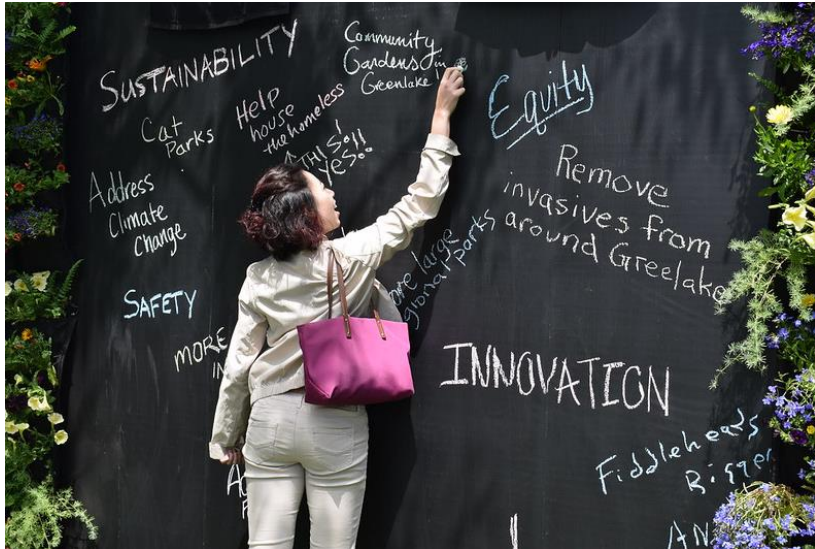 SUSTAINABILITY
Community
Gardens in
Greenlake!
Equity
Cat
Parks
Help
house
the homeless
THIS!!
Yes!!
Address
Climate
Change
Remove
invasives from
around Greelake
large
parks
SAFETY
MORE
IN
INNOVATION
Fiddleheads
Bigger
AN